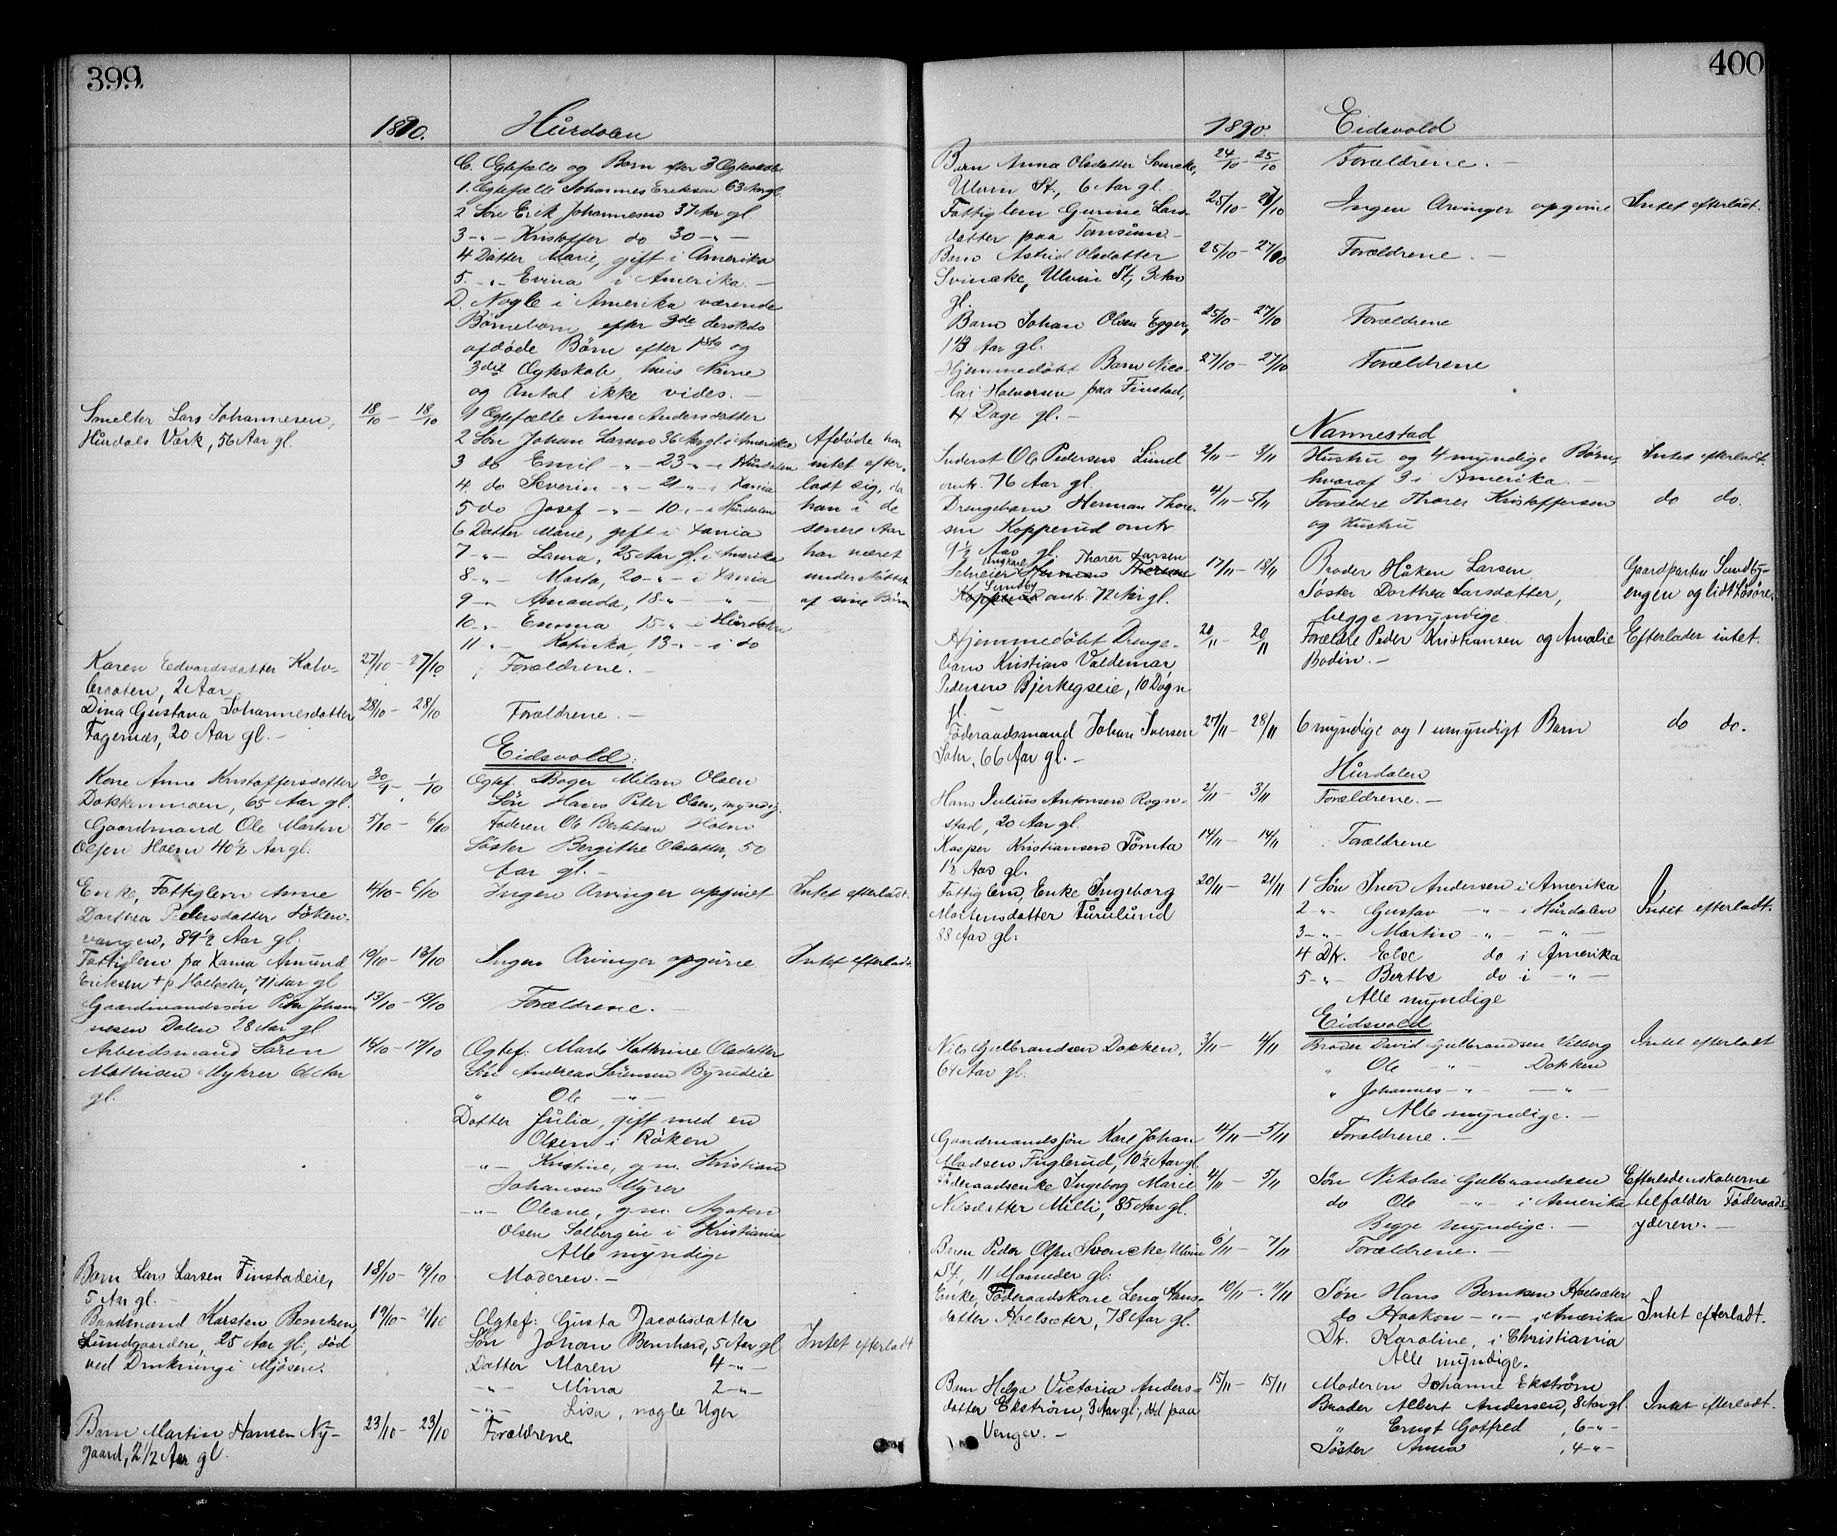 399.
1890. Hurdalen
C. Ægtefælle og Børn efter 3 Ægteskab.
1. Ægtefælle Johannes Eriksen 63 Aar gl.
2 Søn Erik Johannesen 37 Aar gl
3 -"- Kristoffer do 30 -"-
4 Datter Marie, gift i Amerika
5. -"- Evina i Amerika. -
D. Nogle i Amerika værende
Børnebørn efter 3de dersteds
afdøde Børn efter 1ste og
3die Ægteskab, hvis Navne
og Antal ikke vides. -
Smelter Lars Johannesen, 18/10 - 18/10 1 Ægtefælle Anne Andersdatter
Hurdals Værk, 56 Aar gl. 2 Søn Johan Larsen 36 Aar gl i Amerika Afdøde har
3 do Emil -"- 23 -"- i Hurdalen intet efter-
4 do Severin -"- 21 -"- i Xania ladt sig, da
5 do Josef -"- 10 -"- i Hurdalen han i de
6 Datter Marie, gift i Xania senere Aar
7 -"- Laura, 25 Aar gl. i Amerika har været
8 -"- Marta, 20 -"- i Xania understøttet
9 -"- Amanda, 18 -"- -"- af sine Børn
10 -"- Emma 15 -"- i Hurdalen
11 -"- 13 -"- i do
Karen Edvardsdatter Kalv- 27/10 - 27/10 Forældrene. -
braaten, 2 Aar
Dina Gustava Johannesdatter 28/10 - 28/10 Forældrene. -
Fagernæs, 20 Aar gl. -
Eidsvold.
Kone Anne Kristoffersdatter 30/9 - 1/10 Ægtef. Bager Milan Olsen
Dokkenmoen, 65 Aar gl. Søn Hans Peter Olsen, myndig.
Gaardmand Ole Martin 5/10 - 6/10 Faderen Ole Bertelsen Holm
Olsen Holm 40½ Aar gl. Søster Bergithe Olsdatter, 50
Aar gl. -
Enke, Fattiglem Anne 4/10 - 6/10 Ingen Arvinger opgivet Intet efterladt.
Dorthea Pedersdatter Løken-
vangen, 89½ Aar gl.
Fattiglem fra Xania Amund 12/10 - 13/10 Ingen Arvinger opgivne Intet efterladt.
Eriksen 71 Aar gl
Gaardmandssøn Peter Johan- 13/10 - 13/10 Forældrene. -
nesen Dalen 28 Aar gl.
Arbeidsmand Søren 14/10 - 17/10 Ægtef: Marte Kathrine Olsdatter
Mathisen Myhrer 61 Aar Søn Andreas Sørensen Byrudeie
gl. " Ole -"-
Datter Julia, gift med en
Olsen i Røken
-"- Kristine, g.m. Kristian
Johansen Myrer
-"- Oleane, g.m. Agaton
Olsen Solbergeie i Kristiania
Alle myndige
Barn Lars Larsen Finstadeie, 18/10 - 19/10 Moderen. -
5 Aar gl. -
Baadmand Karsten Berntsen, 19/10 - 21/10 Ægtef: Gusta Jacobsdatter
Lundgaarden, 25 Aar gl, død Søn Johan Bernhard, 5 Aar gl Intet efterladt
ved Drukning i Mjøsen. Datter Maren 4 -"-
-"- Mina 2 -"-
-"- Lisa, nogle Uger
Barn Martin Hansen Ny- 23/10 - 23/10 Forældrene
gaard, 2½ Aar gl.
400
1890. Eidsvold
Barn Anna Olsdatter Svencke, 24/10 - 25/10 Forældrene. -
Ulvin St., 6 Aar gl.
Fattiglem Gurine Lars- 25/10 - 27/10 Ingen Arvinger opgivne Intet efterladt.
datter paa Tønsum. -
Barn Astrid Olsdatter 25/10 - 27/10 Forældrene. -
Svencke, Ulvin St, 3 Aar
gl.
Barn Johan Olsen Egger, 25/10 - 27/10 Forældrene
Aar gl.
Hjemmedøbt Barn Nico- 27/10 - 27/10 Forældrene
lai Halvorsen paa Finstad,
4 Dage gl. -
Nannestad
Inderst Ole Pedersen Lund 2/11 - 3/11 Hustru og 4 myndige Børn, Intet efterladt.
omtr. 76 Aar gl. hvoraf 3 i Amerika. -
Drengebarn Herman Thore- 4/11 - 5/11 Forældre Thorer Kristoffersen do do.
sen Kopperud omtr og Hustru
9½ Aar gl.
Ungkarl Thorer Larsen
Selveier Herman Thoresen 17/11 - 18/11 Broder Håken Larsen Gaardparten Sundby-
Sundby
Kopperud omtr. 72 Aar gl. Søster Dorthea Larsdatter, engen og lidt Løsøre.
begge myndige
Hjemmedøbt Drenge- 20/11 - 20/11 Forældre Peder Kristiansen og Amalie Efterlader intet.
barn Kristian Valdemar Bodin. -
Pedersen Bjerkegseie, 10 Døgn
gl.
Føderaadsmand Johan Iversen 27/11 - 28/11 6 myndige og 1 umyndigt Barn do do.
Sahr, 66 Aar gl. -
Hurdalen
Hans Julius Antonsen Rogn- 2/11 - 3/11 Forældrene. -
stad, 20 Aar gl.
Kasper Kristiansen Tømta 14/11 - 14/11 Forældrene
1½ Aar gl.
Fattiglem, Enke Ingeborg 20/11 - 21/11 1 Søn Iver Andersen i Amerika
Mortensdatter Furulund 2 -"- Gustav -"- i Hurdalen Intet efterladt.
88 Aar gl: 3 -"- Martin -"- -"-
4 Dtr. Else do i Amerika
5 -"- Berthe do i -"-
Alle myndige
Eidsvold
Nils Gulbrandsen Dokken, 3/11 - 4/11 Broder David Gulbrandsen Vilberg Intet efterladt
61 Aar gl. " Ole -"- Dokken
" Johannes -"- -"-
Alle myndige. -
Gaardmandssøn Karl Johan 4/11 - 5/11 Forældrene. -
Madsen Fuglerud, 10½ Aar gl.
Føderaadsenke Ingeborg Marie 4/11 - 5/11 Søn Nikolai Gulbrandsen Efterladenskaberne
Nilsdatter Milli, 85 Aar gl. do Ole -"- i Amerika tilfalder Føderaads-
Begge myndige. - yderen. -
Barn Peder Olsen Svencke Ulvin 6/11 - 7/11 Forældrene. -
St, 11 Maaneder gl:
Enke, Føderaadskone Lena Hans- 10/11 - 11/11 Søn Hans Berntsen Hoelsæter
datter Hoelsæter, 78 Aar gl. do Haakon -"- i Amerika Intet efterladt.
Dtr. Karoline, i Christiania
Alle myndige.
Barn Helga Victoria Anders- 15/11 - 15/11 Moderen Johanne Ekstrøm
datter Ekstrøm, 3 Aar gl., død paa Broder Albert Andersen, 8 Aar gl. Intet efterladt.
Venger. - " Ernst Gotfred , 6 -"-
Søster Anna , 4 -"-